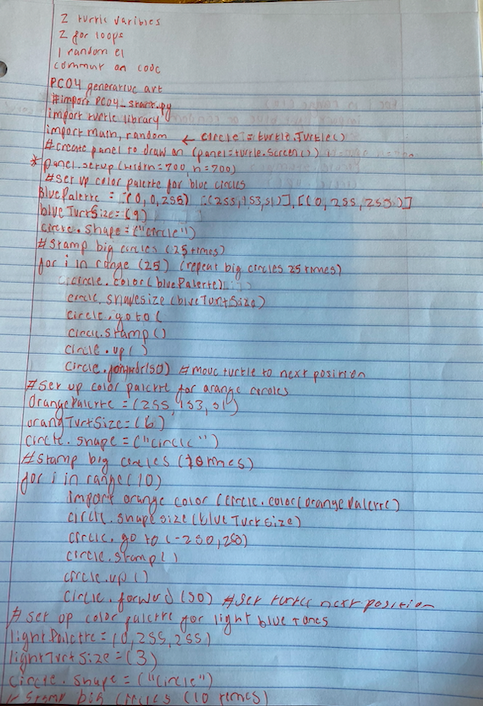 2 turtle varibles
2 for loops
1 random el
comment on code
PC04 generative art
#import PC04_start.py
import turtle library
import math, random ← circle = turtle.Turtle()
#create panel to draw on (panel=turtle.Screen())
* panel.setup (width=700, h=700)
#set up color palette for blue circles
BluePalette = [(0,0,255) ,[(255,153,51)],[(0,255,255)]
blueTurtSize=(9)
circle.shape=("circle")
#stamp big circles (25 times)
for i in range (25) (repeat big circles 25 times)
circle.color(bluePalette)
circle.shapesize(blueTurtSize)
circle.go to (
circle.stamp()
circle.up()
circle.forward(50) #move turtle to next position
#set up color palette for orange circles
OrangePalette=(255,153,51)
orangTurtSize=(6)
circle.shape=("circle")
#stamp big circles (10 times)
for i in range(10)
import orange color (circle.color(orangePalette)
circle.shapesize(blueTurtSize)
circle.go to (-250,250)
circle.stamp()
circle.up()
circle.forward(50) #set turtle next position
# set up color palette for light blue tones
lightPalette=(0,255,255)
lightTurtSize=(3)
circle.shape=("circle")
# stamp big circles (10 times)